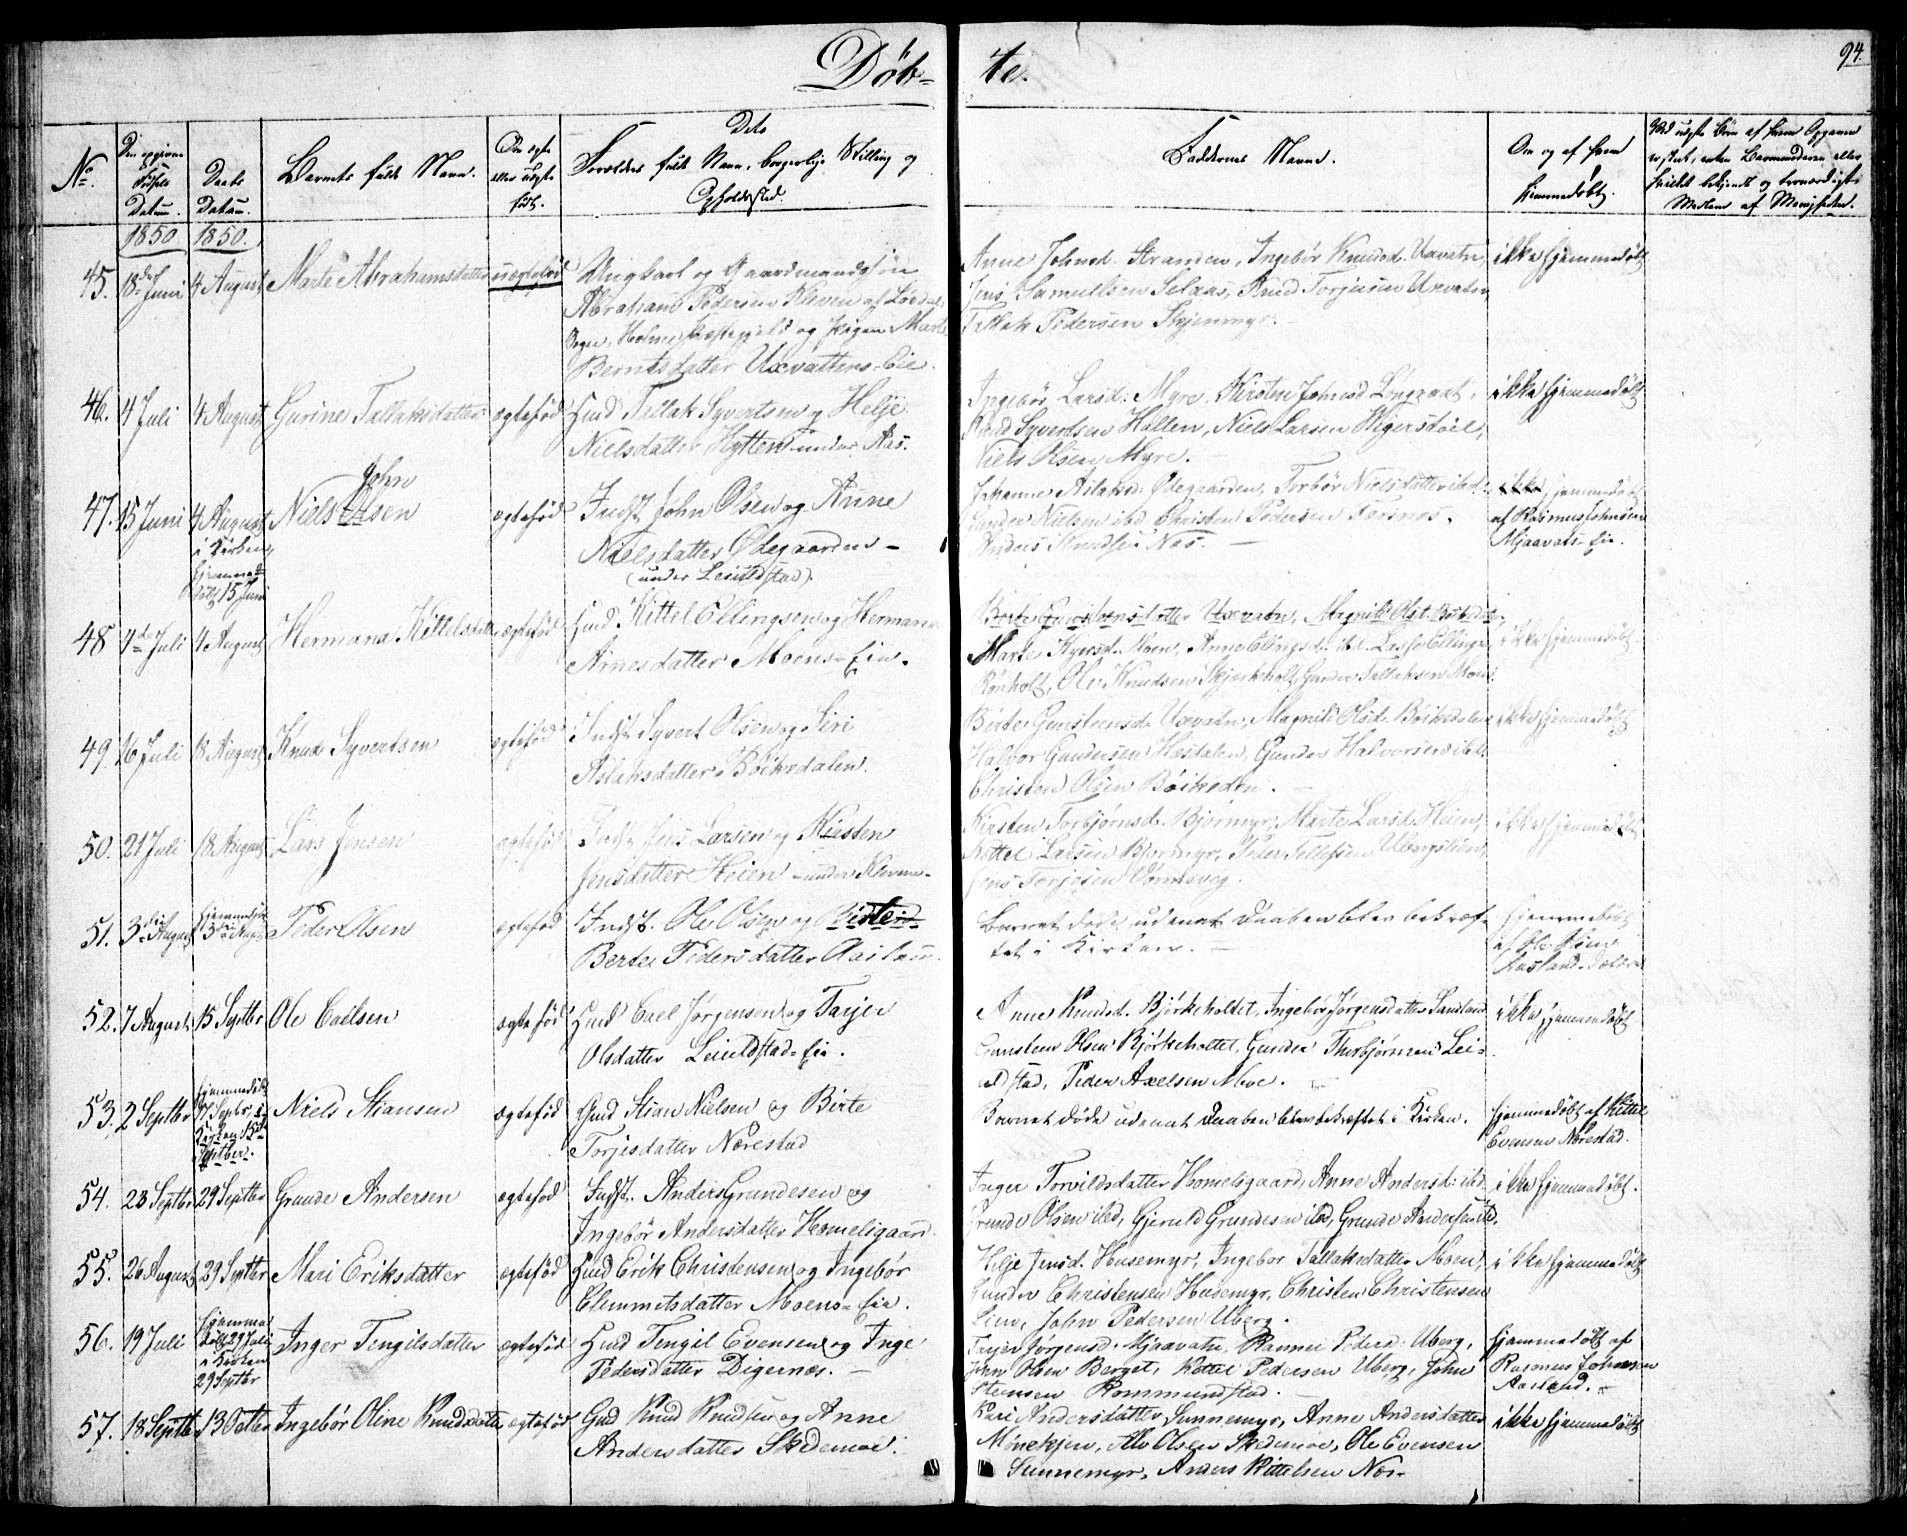 Døb-
te.
94.
No.
Den opgivne Fødsels Datum.
Daabs Datum.
Barnets fulde Navn.
Om egte eller uegte født.
Dets Forældres fulde Navn, borgerlige Stilling og Opholdssted.
Faddernes Navne.
Om og af hvem hjemmedøbt.
1850
1850.
45. 18de Juni 4 August Marte Abrahamsdatter uægtefød
Ungkarl og Gaardmandssøn
Abraham Pedersen Kleven af
Sogn, Holme Præstegjeld og Pigen Marte
Berntsdatter Uxvattens-Eie.
Anne Johnsd. Stranden, Ingebør Knudsd. Uxvatn,
Jens Samuelsen Selaas, Knud Torjusen Uxvatn,
Tallak Pedersen Skjenmyr.
ikke hjemmedøbt
46. 4 Juli 4 August Gurine Tallaksdatter ægtefød
Huusmd Tallak Syvertsen og Helje
Nielsdatter Hytten under Aas.
Ingebør Larsd. Myre, Kirsten Johnsd
Knud Syvertsen Hallen, Niels Larsen
Niels Olsen Myre.
ikke hjemmedøbt
47. 15 Juni 4 August i Kirken, hjemmedøbt 15 Juni
Niels Olsen
John
ægtefød
Indst. John Olsen og Anne
Nielsdatter Ødegaarden -
(under Leiulstad).
Johanne Aslaksd. Ødegaarden, Torbør Nielsdatter ibd.
Gunder Nielsen ibd Christen Pedersen
Anders Knudsen Næs. -
ikke hjemmedøbt
af Rasmus Johnsen
Mjaavats-Eie.
48 4de Juli 4 August Hermana Kittelsdatter ægtefød
Huusmd. Kittel Ellingsen og Hermana
Arnesdatter Moens-Eie.
Berte Gunstensdatter Uxvatn, Magnild Olsd.
Marte Moen, Anne Ellingsd. ibd. Lasse Ellingsen
Rønholt, Ole Knudsen Skjerkholt, Gunder Tallaksen Moen.
ikke hjemmedøbt
49. 16 Juli 18 August Knud Syvertsen ægtefød
Indst. Syvert Olsen og Siri
Aslaksdatter Bøikedalen.
Birte Gunstensd. Uxvatn, Magnild Olsd. Bøikedalen
Halvor Gundersen Hestalen, Gunder Halvorsen ibd.
Christen Olsen Bøikeden.
ikke hjemmedøbt
50. 21 Juli 18 August Lars Jensen ægtefød
Indst. Jens Larsen og Kirsten
Jensdatter Heien - under Kleven -
Kirsten Torbjørnsd. Bjørmyr, Marte Larsd. Heien,
Kittel Larsen Bjørmyr, Peder Tellefsen
Jens Torjesen
ikke hjemmedøbt
51. 3die August hjemmedøbt 3die August Peder Olsen ægtefød
Indst. Ole Olsen og
Berte Pedersdatter Aasland.
Barnet døde, udenat Daaben blev bekræf-
tet i Kirken. -
hjemmedøbt
af Ole Olsen
Aasland.
52. 7 August 15 Septbr Ole Caelsen ægtefød
Husmd Cael Jørgensen og Tarjer
Olsdatter Leiulstad-Eie.
Anne Knudsd. Bjørkeholtet, Ingebør Jørgensdatter
Gunsten Olsen Bjørkeholtet, Gunder Thorbjørnsen Lei-
ulstad, Peder Axelsen Moe.
ikke hjemmedøbt
53. 2 Septbr hjemmedøbt Septbr, i Kirken 15de Septber. Niels Stiansen ægtefød
Gmd Stian Nielsen og Birte
Torjisdatter Nærestad
Barnet døde udenat Daaben blev bekræftet i Kirken.
hjemmedøbt af Kittel
Evensen Nærestad.
54. 23 Septbr 29 Septbr Grunde Andersen ægtefød
Indst. Anders Grundesen og
Ingebør Andersdatter Homelsgaard.
Inger Torvildsdatter Homelsgaard, Anne Andersd. ibd.
Grunde Olsen ibd, Gjeruld Grundesen ibd, Grunde Andersen ibd.
ikke hjemmedøbt.
55. 26 August 29 Septbr Mari Eriksdatter ægtefød
Husmd Erik Christensen og Ingebør
Clemmetsdatter Moens-Eie.
Helje Jensd. Husemyr, Ingebor Tallaksdatter Moen,
Gunder Christensen Husemyr, Christen Christensen
Lien, John Pedersen Uberg.
ikke hjemmedøbt
56. 19 Juli hjemmedøbt 29 Juli i Kirken 29 Septbr Inger Tengilsdatter ægtefød
Husmd Tengil Evensen og Inge
Pedersdatter Digernæs. -
Tarjer Jørgensd. Mjaavatn, Pedersd. Uberg,
John Olsen Berget, Kittel Pedersen Uberg, John
Steensen Rommundstad.
hjemmedøbt af
Rasmus Johnsen
Aasland. -
57. 18 Septbr 13 Octbr Ingebør Oline Knudsdatter ægtefød
Gmd Knud Knudsen og Anne
Andersdatter Skedemoe.
Kari Andersdatter Sunnemyr, Anne Andersdatter
Alv Olsen Skedemoe, Ole Evensen
Sunnemyr, Anders Kittelsen Næs-
ikke hjemmedøbt